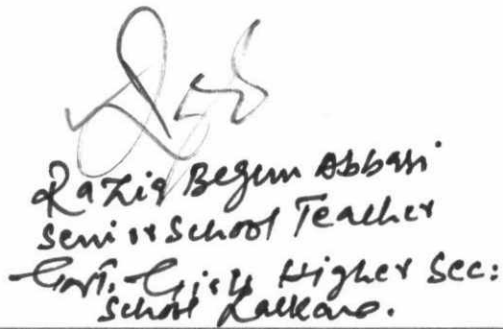 Razia Begum Abbasi
Senior School Teacher
Govt. Girls Higher Sec:
School Larkana.